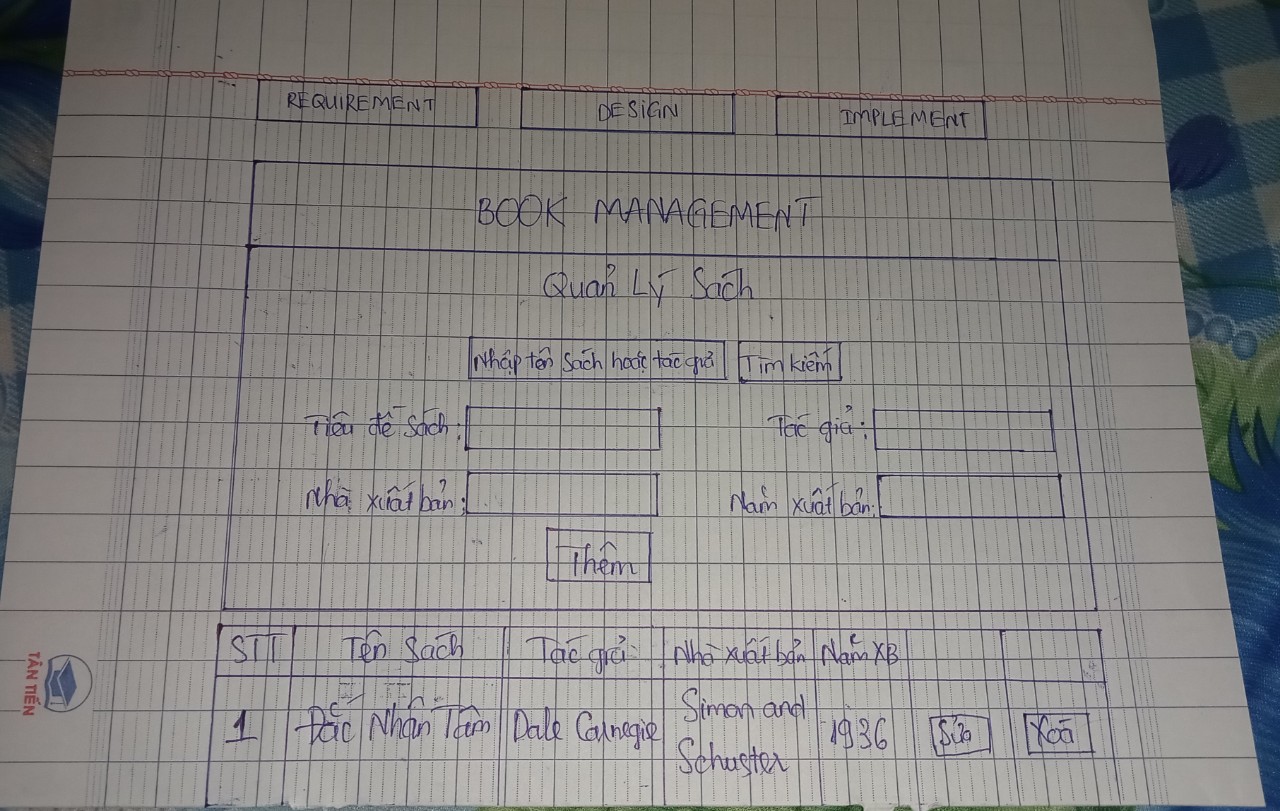 REQUIREMENT DESIGN IMPLEMENT
BOOK MANAGEMENT
Quản Lý Sách
Nhập tên sách hoặc tác giả Tìm kiếm
Tiêu đề sách: Tác giả:
Nhà xuất bản: Năm xuất bản:
Thêm
STT Tên Sách Tác giả Nhà xuất bản Năm XB
1 Đắc Nhân Tâm Dale Carnegie Simon and Schuster 1936 Sửa Xoá
TÂN TIẾN